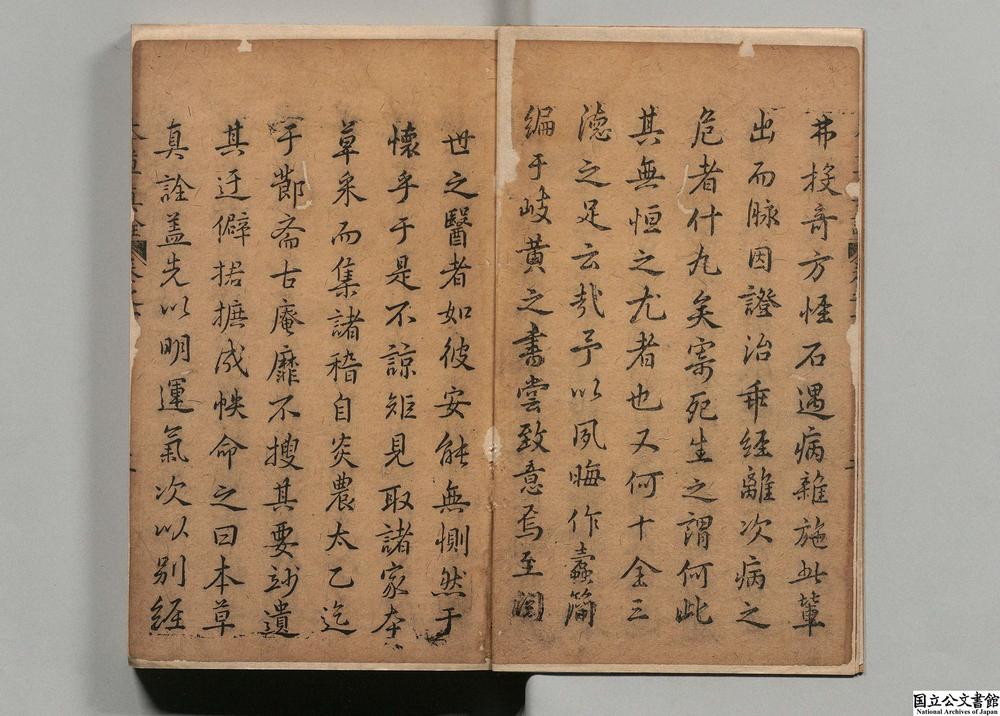 弗投奇方怪石遇病雜施此輩
出而脉因證治乖經離次病之
危者什九矣寄死生之謂何此
其無恒之尤者也又何十全三
德之足云哉予以夙晦作蠹簡
編于岐黄之書嘗致意焉至閱
世之醫者如彼安能無惻然于
懷乎于是不諒矩見取諸家本
草采而集諸稽自炎農太乙迄
于節斋古庵靡不搜其要訪遺
其迂僻捃摭成帙命之曰本草
真詮盖先以明運氣次以别經
国立公文書館
National Archives of Japan